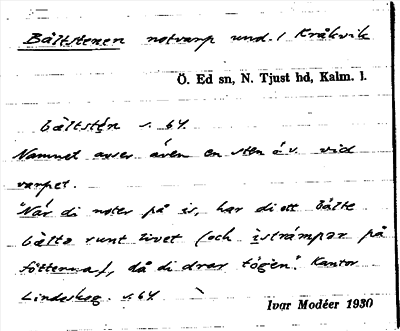 Bältstenen notvarp und. / Kråkvik
Ö. Ed sn, N. Tjust hd, Kalm. l.
bältstén s. 64.
Namnet avses även en sten å v. vid
varpet.
"När di noter på is, har di ett bälte
bälta runt livet (och istrámpar på
fötterna), då di drar tögen". Kantor
Lindeskog. s. 64
Ivar Modéer 1930